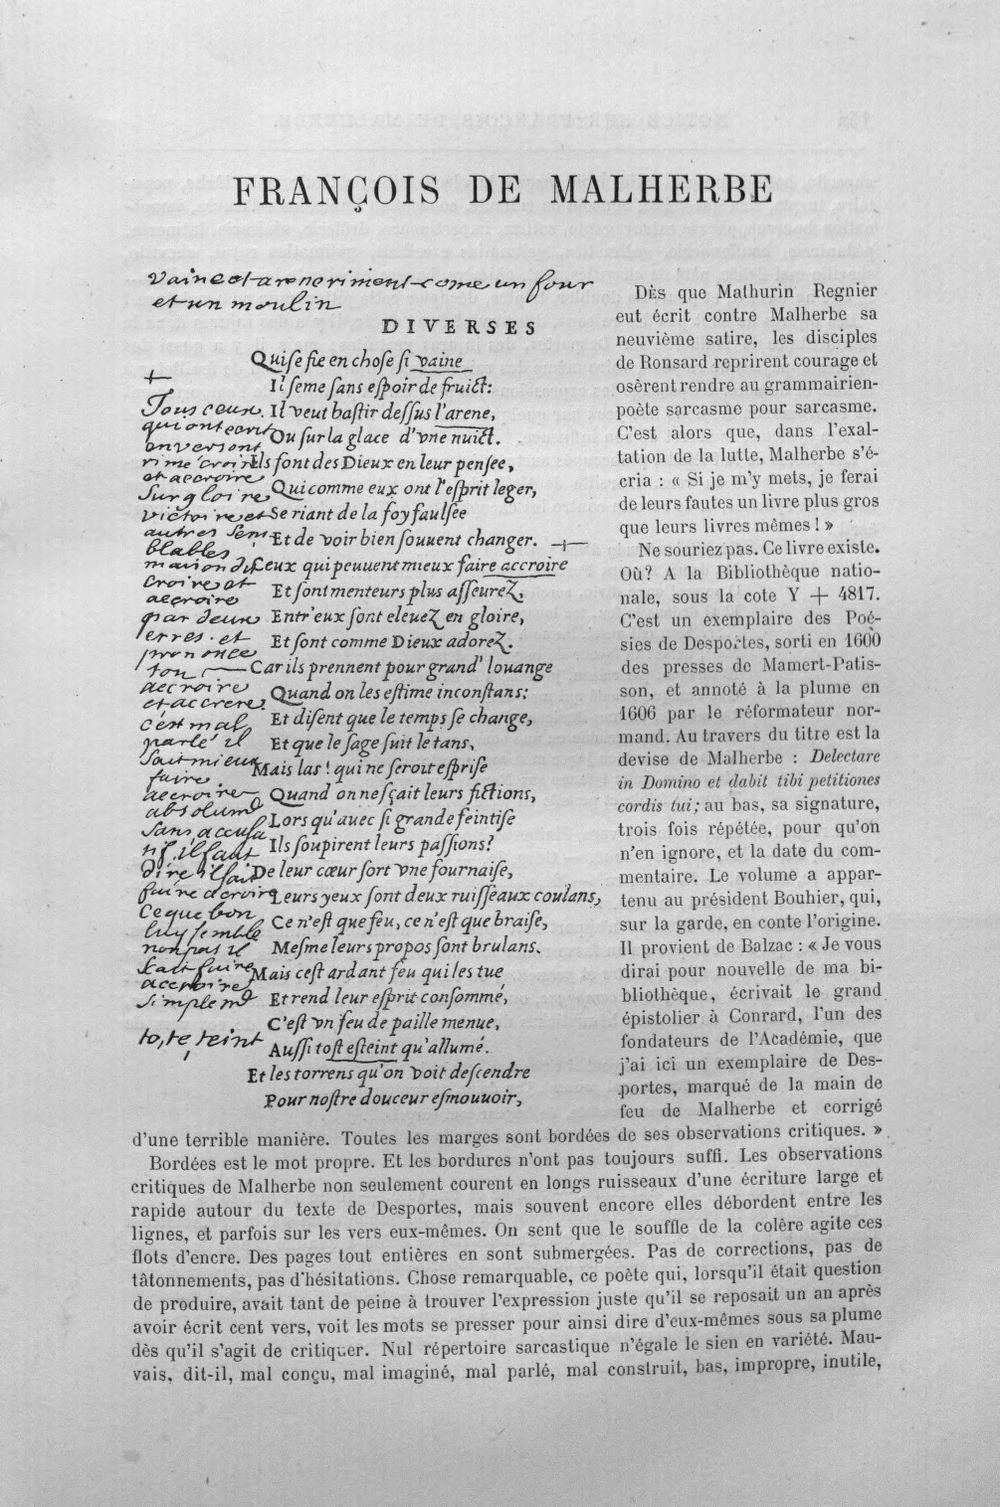 FRANÇOIS DE MALHERBE
vaine et arene riment come un four
et un moulin
DIVERSES
Qui ſe fie en choſe ſi vaine
Il ſeme ſans eſpoir de fruict:
Il veut baſtir deſſus l'arene,
Ou ſur la glace d'vne nuict.
Ils font des Dieux en leur penſee,
Qui comme eux ont l'eſprit leger,
Se riant de la foy faulſee
Et de voir bien ſouuent changer.
Ceux qui peuuent mieux faire accroire
Et ſont menteurs plus aſſeurez,
Entr'eux ſont eleuez en gloire,
Et ſont comme Dieux adorez.
Car ils prennent pour grand' louange
Quand on les eſtime inconſtans:
Et diſent que le temps ſe change,
Et que le ſage ſuit le tans,
Mais las! qui ne ſeroit eſpriſe
Quand on ne ſçait leurs fictions,
Lors qu'auec ſi grande feintiſe
Ils ſoupirent leurs paſſions?
De leur cœur ſort vne fournaiſe,
Leurs yeux ſont deux ruiſſeaux coulans,
Ce n'eſt que feu, ce n'eſt que braiſe,
Meſme leurs propos ſont brulans.
Mais ceſt ardant feu qui les tue
Et rend leur eſprit conſommé,
C'eſt vn feu de paille menue,
Auſſi toſt eſteint qu'allumé.
Et les torrens qu'on voit deſcendre
Pour noſtre douceur eſmouuoir,
Tous ceux
qui ont escrit
en vers ont
rimé croire
et accroire
sur gloire
victoire et
autres sem
blables
mais on dit
croire et
accroire
par deux
erres. et
prononce
ton
accroire
et accrere.
c'est mal
parlé il
sait mieux
faire
accroire
absolumt
sans accusa
tif, il faut
dire il sait
faire acroire
ce que bon
luy semble
non pas il
scait faire
accroire
simplemt
to, te, teint
DÈS que Mathurin Regnier
eut écrit contre Malherbe sa
neuvième satire, les disciples
de Ronsard reprirent courage et
osèrent rendre au grammairien-
poète sarcasme pour sarcasme.
C'est alors que, dans l'exal-
tation de la lutte, Malherbe s'é-
cria : « Si je m'y mets, je ferai
de leurs fautes un livre plus gros
que leurs livres mêmes ! »
Ne souriez pas. Ce livre existe.
Où? A la Bibliothèque natio-
nale, sous la cote Y + 4817.
C'est un exemplaire des Poé-
sies de Desportes, sorti en 1600
des presses de Mamert-Patis-
son, et annoté à la plume en
1606 par le réformateur nor-
mand. Au travers du titre est la
devise de Malherbe : Delectare
in Domino et dabit tibi petitiones
cordis tui; au bas, sa signature,
trois fois répétée, pour qu'on
n'en ignore, et la date du com-
mentaire. Le volume a appar-
tenu au président Bouhier, qui,
sur la garde, en conte l'origine.
Il provient de Balzac : « Je vous
dirai pour nouvelle de ma bi-
bliothèque, écrivait le grand
épistolier à Conrard, l'un des
fondateurs de l'Académie, que
j'ai ici un exemplaire de Des-
portes, marqué de la main de
feu de Malherbe et corrigé
d'une terrible manière. Toutes les marges sont bordées de ses observations critiques. »
Bordées est le mot propre. Et les bordures n'ont pas toujours suffi. Les observations
critiques de Malherbe non seulement courent en longs ruisseaux d'une écriture large et
rapide autour du texte de Desportes, mais souvent encore elles débordent entre les
lignes, et parfois sur les vers eux-mêmes. On sent que le souffle de la colère agite ces
flots d'encre. Des pages tout entières en sont submergées. Pas de corrections, pas de
tâtonnements, pas d'hésitations. Chose remarquable, ce poète qui, lorsqu'il était question
de produire, avait tant de peine à trouver l'expression juste qu'il se reposait un an après
avoir écrit cent vers, voit les mots se presser pour ainsi dire d'eux-mêmes sous sa plume
dès qu'il s'agit de critiquer. Nul répertoire sarcastique n'égale le sien en variété. Mau-
vais, dit-il, mal conçu, mal imaginé, mal parlé, mal construit, bas, impropre, inutile,